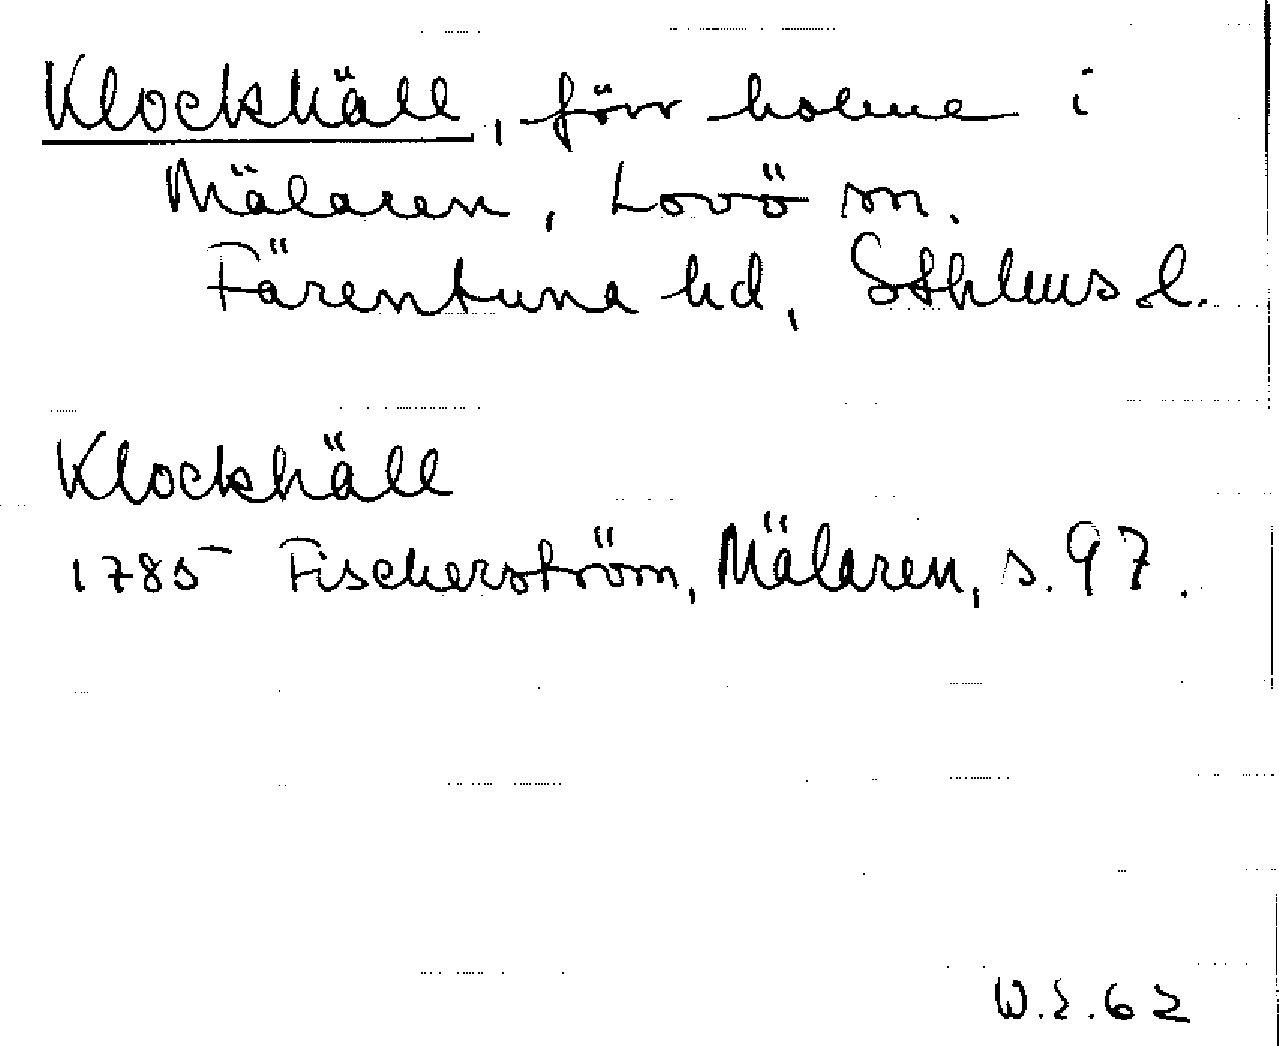 Klockhäll, förr holme i
Mälaren, Lovö sn.
Färentuna hd, Sthlms l.
Klockhäll
1785 Fischerström, Mälaren, s. 97.
W.E. 62